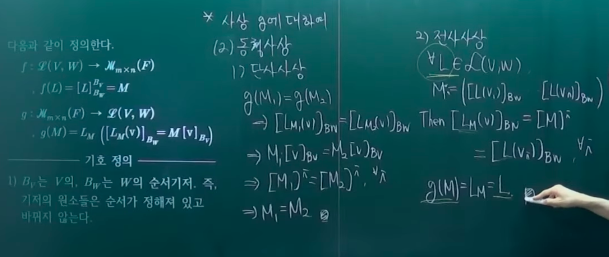 다음과 같이 정의한다.
f : ℒ(V, W) → 𝓜_{m×n}(F)
. f(L) = [L]_{B_V}^{B_W} = M
g : 𝓜_{m×n}(F) → ℒ(V, W)
. g(M) = L_M ([L_M(v)]_{B_W} = M[v]_{B_V})
기호 정의
1) B_V는 V의, B_W는 W의 순서기저. 즉,
기저의 원소들은 순서가 정해져 있고
바뀌지 않는다.
* 사상 g에 대하여
(2) 동형사상
1) 단사사상
g(M₁) = g(M₂)
⇒ [L_{M₁}(v)]_{BW} = [L_{M₂}(v)]_{BW}
⇒ M₁[v]_{BV} = M₂[v]_{BV}
⇒ [M₁]^i = [M₂]^i, ∀i
⇒ M₁ = M₂
2) 전사사상
∀L ∈ ℒ(V, W).
M := ([L(v₁)]_{BW} [L(vₙ)]_{BW})
Then [L_M(v_i)]_{BW} = [M]^i
= [L(v_i)]_{BW}, ∀i
g(M) = L_M = L.